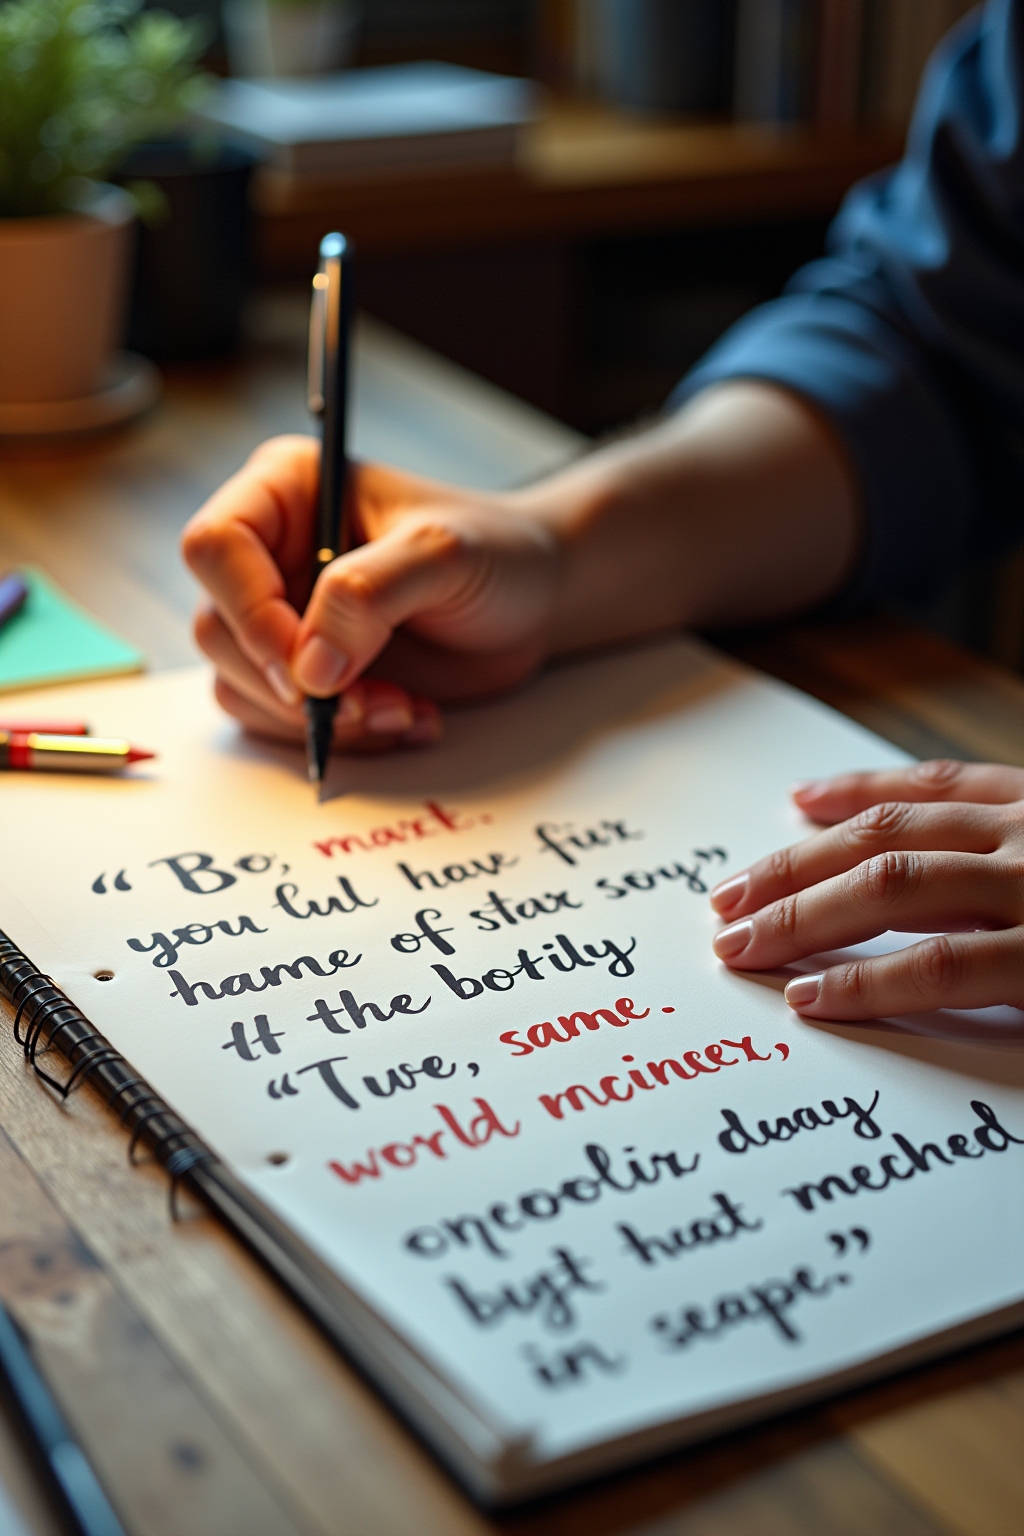 “Bo, maxt.
you lul have fiix
hame of stax soy”
tt the botily
“Twe, same.
world mcineex,
duay
byt heat meched
in seape.”